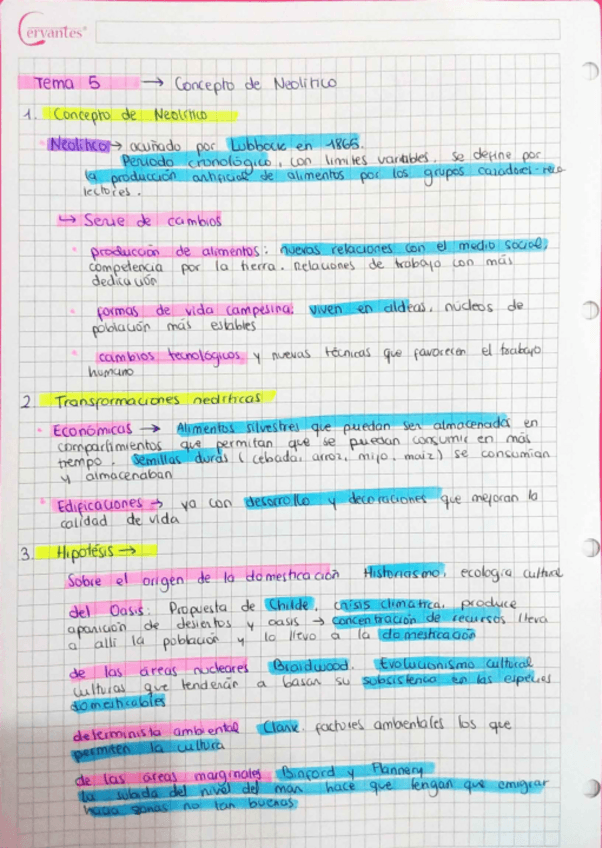 Cervantes
Tema 5 → Concepto de Neolítico
1. Concepto de Neolítico
Neolítico → acuñado por Lubbock en 1865.
Periodo cronológico, con límites variables. se define por
la producción artificial de alimentos por los grupos cazadores-reco
lectores.
↳ Serie de cambios
producción de alimentos: nuevas relaciones con el medio social,
competencia por la tierra. Relaciones de trabajo con más
dedicación
formas de vida campesina: viven en aldeas, núcleos de
población más estables
cambios tecnológicos y nuevas técnicas que favorecen el trabajo
humano
2. Transformaciones neolíticas
Económicas → Alimentos silvestres que puedan ser almacenada en
compartimientos que permitan que se puedan consumir en más
tiempo. Semillas duras (cebada, arroz, mijo, maíz) se consumían
y almacenaban
Edificaciones → ya con desarrollo y decoraciones que mejoran la
calidad de vida
3. Hipótesis →
Sobre el origen de la domesticación Historiasmo, ecología cultural
del Oasis: Propuesta de Childe, crisis climática, produce
aparición de desiertos y oasis → concentración de recursos lleva
a allí la población y lo llevo a la domesticación
de las áreas nucleares Braidwood. Evolucionismo cultural
culturas que tenderán a basar su subsistencia en las especies
domesticables
determinista ambiental Clark, factores ambientales los que
permiten la cultura
de las áreas marginales Binford y Flannery
la subida del nivel del mar hace que tengan que emigrar
hacia zonas no tan buenas